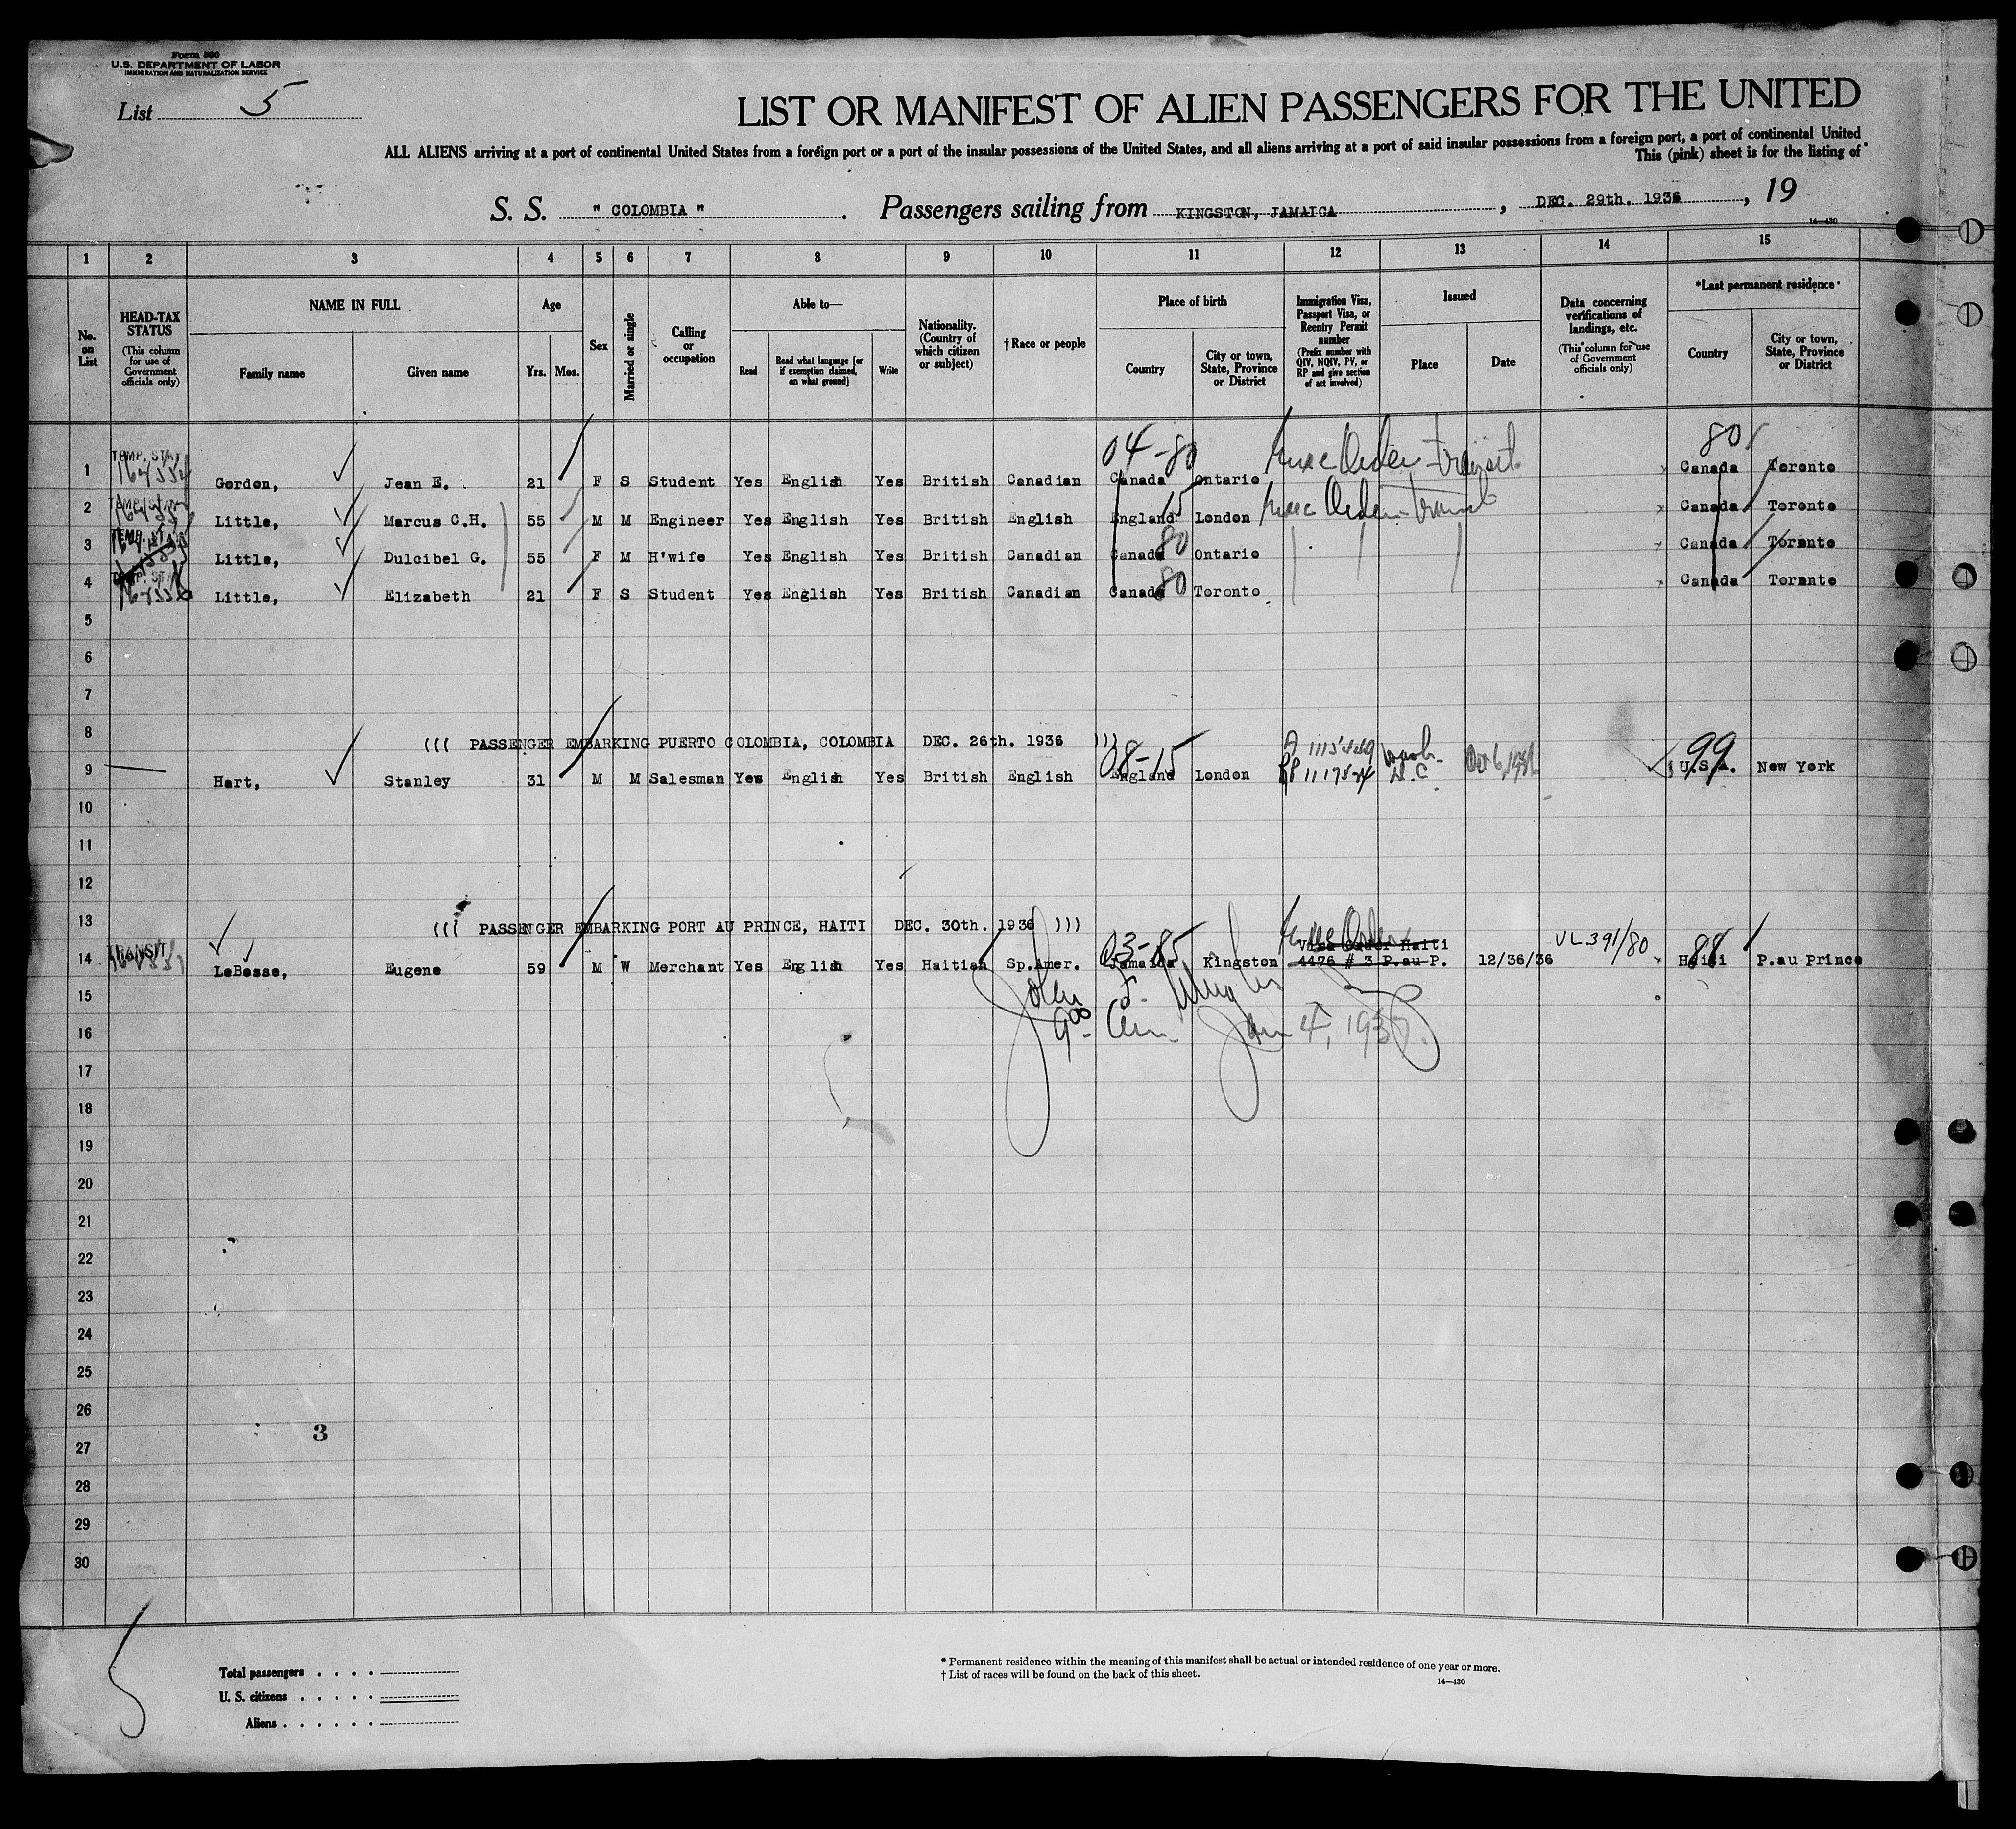 Form 500
U.S. DEPARTMENT OF LABOR
IMMIGRATION AND NATURALIZATION SERVICE
List 5
LIST OR MANIFEST OF ALIEN PASSENGERS FOR THE UNITED
ALL ALIENS arriving at a port of continental United States from a foreign port or a port of the insular possessions of the United States, and all aliens arriving at a port of said insular possessions from a foreign port, a port of continental United
This (pink) sheet is for the listing of
S. S. " COLOMBIA " . Passengers sailing from KINGSTON, JAMAICA , DEC. 29th. 1936 , 19
14—430
1 2 3 4 5 6 7 8 9 10 11 12 13 14 15
No. on List
HEAD-TAX STATUS
(This column for use of Government officials only)
NAME IN FULL
Family name
Given name
Age
Yrs. Mos.
Sex
Married or single
Calling or occupation
Able to—
Read
Read what language [or if exemption claimed, on what ground]
Write
Nationality. (Country of which citizen or subject)
† Race or people
Place of birth
Country
City or town, State, Province or District
Immigration Visa, Passport Visa, or Reentry Permit number
(Prefix number with QIV, NQIV, PV, or RP and give section of act involved)
Issued
Place
Date
Data concerning verifications of landings, etc.
(This column for use of Government officials only)
*Last permanent residence
Country
City or town, State, Province or District
04-80 801
1 TEMP. STAY Gordon, Jean E. 21 F S Student Yes English Yes British Canadian Canada Ontario Transit Canada Toronto
2 Little, Marcus C.H. 55 M M Engineer Yes English Yes British English England 15 London Canada Toronto
3 TEMP. STAY Little, Dulcibel G. 55 F M H'wife Yes English Yes British Canadian Canada 80 Ontario Canada Toronto
4 TEMP. STAY Little, Elizabeth 21 F S Student Yes English Yes British Canadian Canada 80 Toronto Canada Toronto
5
6
7
8 ((( PASSENGER EMBARKING PUERTO COLOMBIA, COLOMBIA DEC. 26th. 1936 )))
08-15 99
9 Hart, Stanley 31 M M Salesman Yes English Yes British English England London RP 1117524 Wash. D.C. Oct 6, 1936 U.S.A. New York
10
11
12
13 ((( PASSENGER EMBARKING PORT AU PRINCE, HAITI DEC. 30th. 1936 )))
03-85 Visa Under Haiti VL391/80 88
14 TRANSIT LeBosse, Eugene 59 M W Merchant Yes English Yes Haitian Sp.Amer. Jamaica Kingston 4476 # 3 P.au P. 12/36/36 Haiti P.au Prince
15 John F.
16 9 00 Am. Jan 4, 1937.
17
18
19
20
21
22
23
24
25
26
3
27
28
29
30
5
Total passengers . . . .
U. S. citizens . . . . .
Aliens . . . . . .
* Permanent residence within the meaning of this manifest shall be actual or intended residence of one year or more.
† List of races will be found on the back of this sheet.
14—430